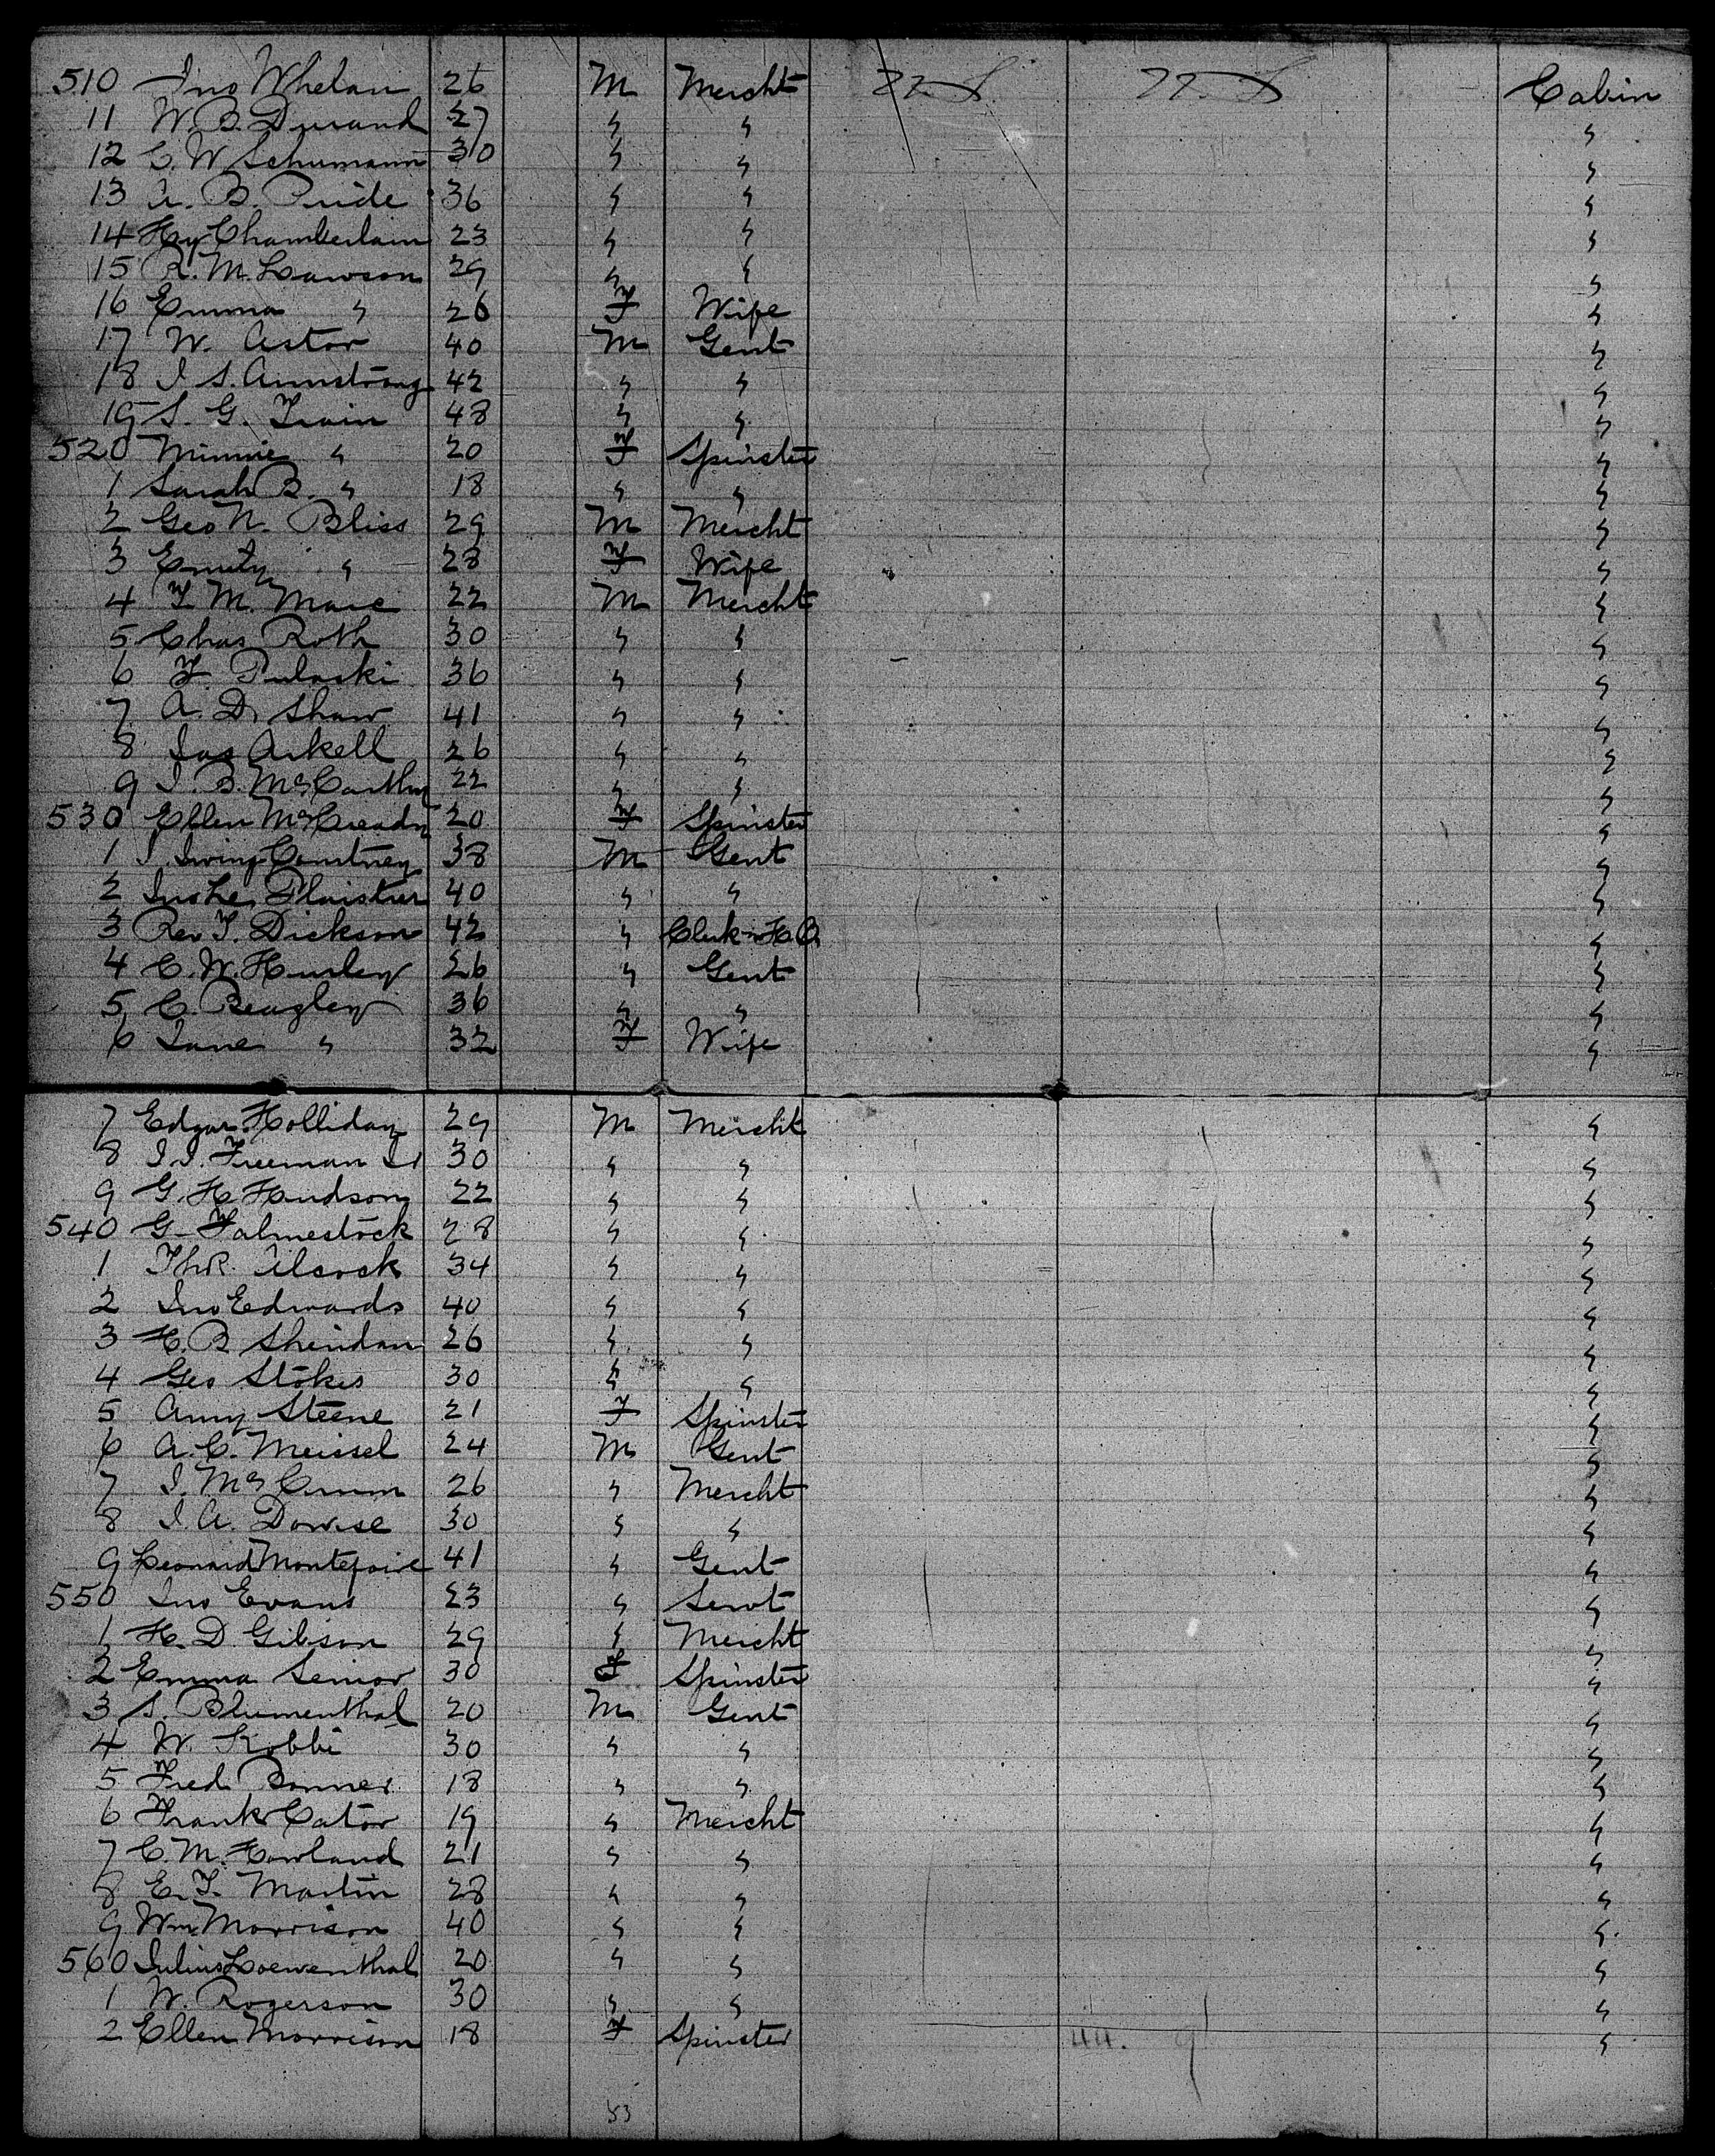 510 Jno Whelan 26 M Mercht U.S. U.S. Cabin
11 W. B. Durand 27 " " "
12 C. W. Schumann 30 " " "
13 A. B. Pride 36 " " "
14 Hy Chamberlain 23 " " "
15 R. M. Lawson 29 " " "
16 Emma " 26 F Wife "
17 W. Astor 40 M Gent "
18 J. S. Armstrong 42 " " "
19 S. G. Train 48 " " "
520 Minnie " 20 F Spinster "
1 Sarah B. " 18 " " "
2 Geo N. Bliss 29 M Mercht "
3 Emily " 28 F Wife "
4 F. M. 22 M Mercht "
5 Chas Roth 30 " " "
6 F. Pulaski 36 " " "
7 A. D. Shaw 41 " " "
8 Jas Arkell 26 " " "
9 J. B. McCarthy 22 " " "
530 Ellen McCready 20 F Spinster "
1 J. Irving Courtney 38 M Gent "
2 Jno Le Plaistrier 40 " " "
3 Rev T. Dickson 42 " Clerk H.O. "
4 C. W. Hurley 26 " Gent "
5 C. Beagley 36 " " "
6 Jane " 32 F Wife "
7 Edgar Holliday 29 M Mercht "
8 J. J. Freeman Jr 30 " " "
9 G. H. Hudson 22 " " "
540 G. Falmestock 28 " " "
1 Th R. Alcock 34 " " "
2 Jno Edwards 40 " " "
3 H. B. Sheridan 26 " " "
4 Geo Stokes 30 " " "
5 Amy Steene 21 F Spinster "
6 A. C. Meissel 24 M Gent "
7 J. McCrum 26 " Mercht "
8 J. A. Dowse 30 " " "
9 Leonard Montefoire 41 " Gent "
550 Jno Evans 23 " Servt "
1 H. D. Gibson 29 " Mercht "
2 Emma Senior 30 F Spinster "
3 S. Blumenthal 20 M Gent "
4 W. Kobbé 30 " " "
5 Fred Bonner 18 " " "
6 Frank Cator 19 " Mercht "
7 C. M. Howland 21 " " "
8 E. T. Martin 28 " " "
9 Wm Morrison 40 " " "
560 Julius Loewenthal 20 " " "
1 W. Rogerson 30 " " "
2 Ellen Morrison 18 F Spinster "
44. 9
53